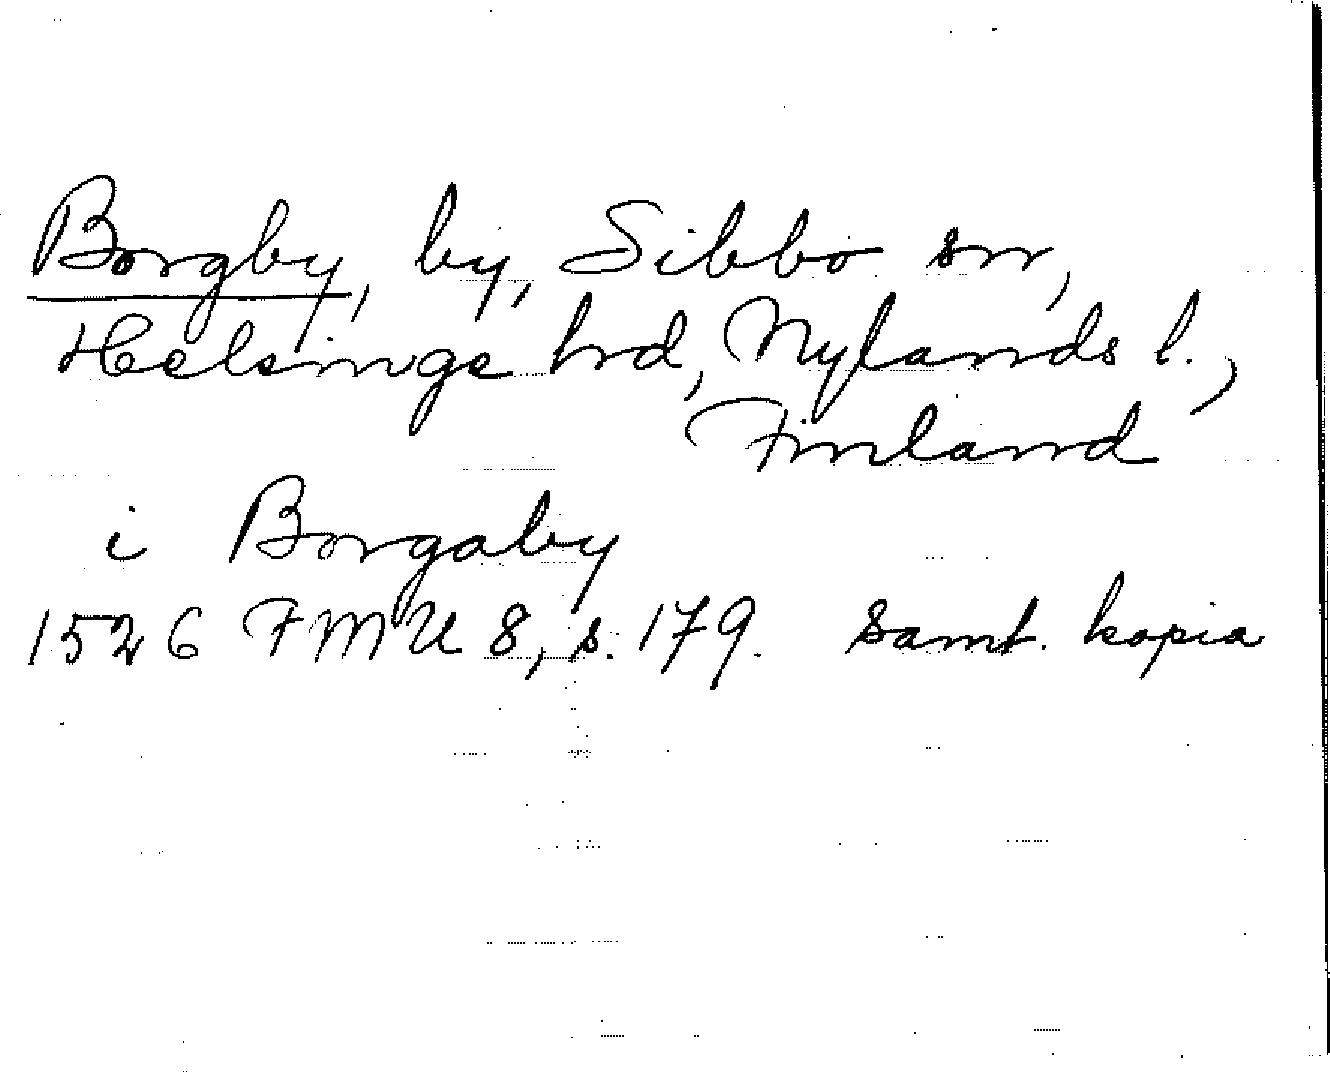 Borgby, by, Sibbo sn,
Helsinge hrd, Nylands l.,
Finland
i Borgaby
1526 FMU 8, s. 179. Samt. kopia